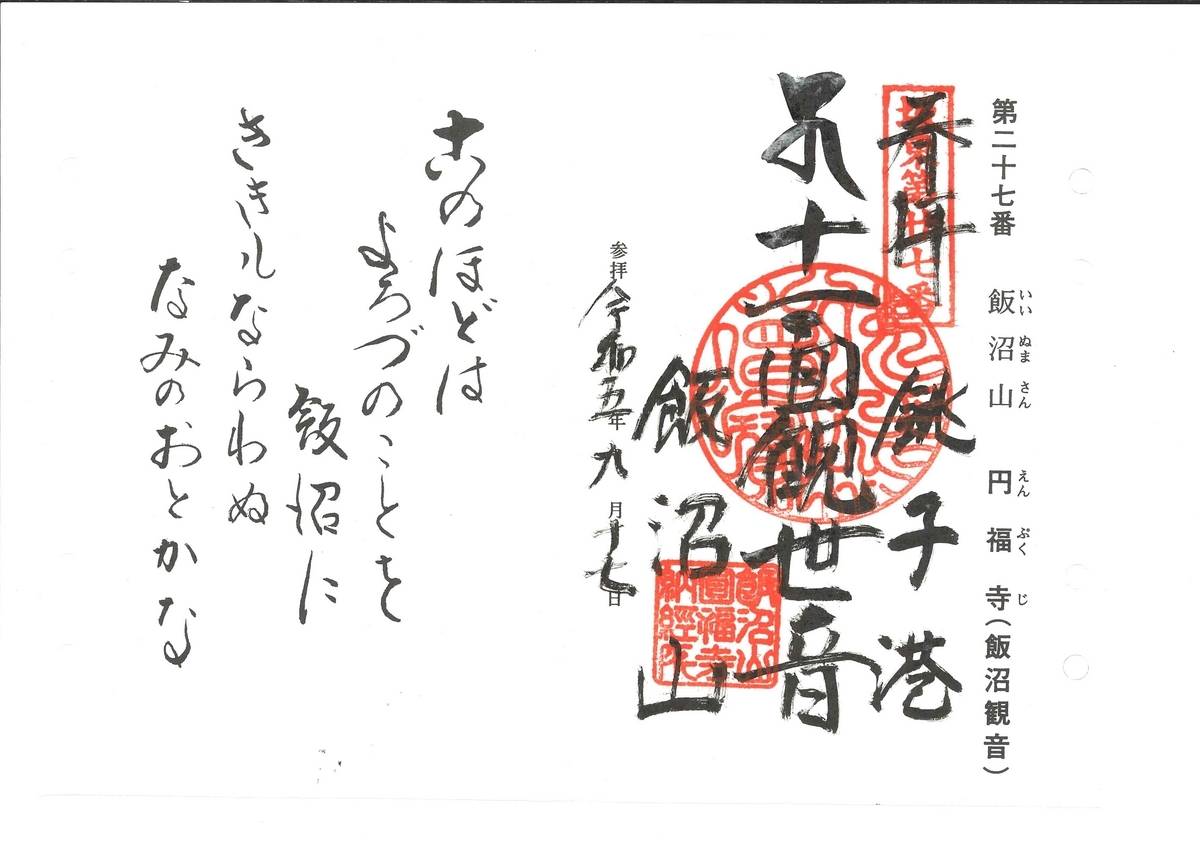 第二十七番 飯沼山 円福寺(飯沼観音)
いい ぬま さん えん ぷく じ
奉拝 銚子港
坂東第廿七番
十一面観世音
飯沼山
飯沼山
圓福寺
納經所
参拝 令和五年九月十七日
このほどは
よろづのことを
飯沼に
ききもならわぬ
なみのおとかな